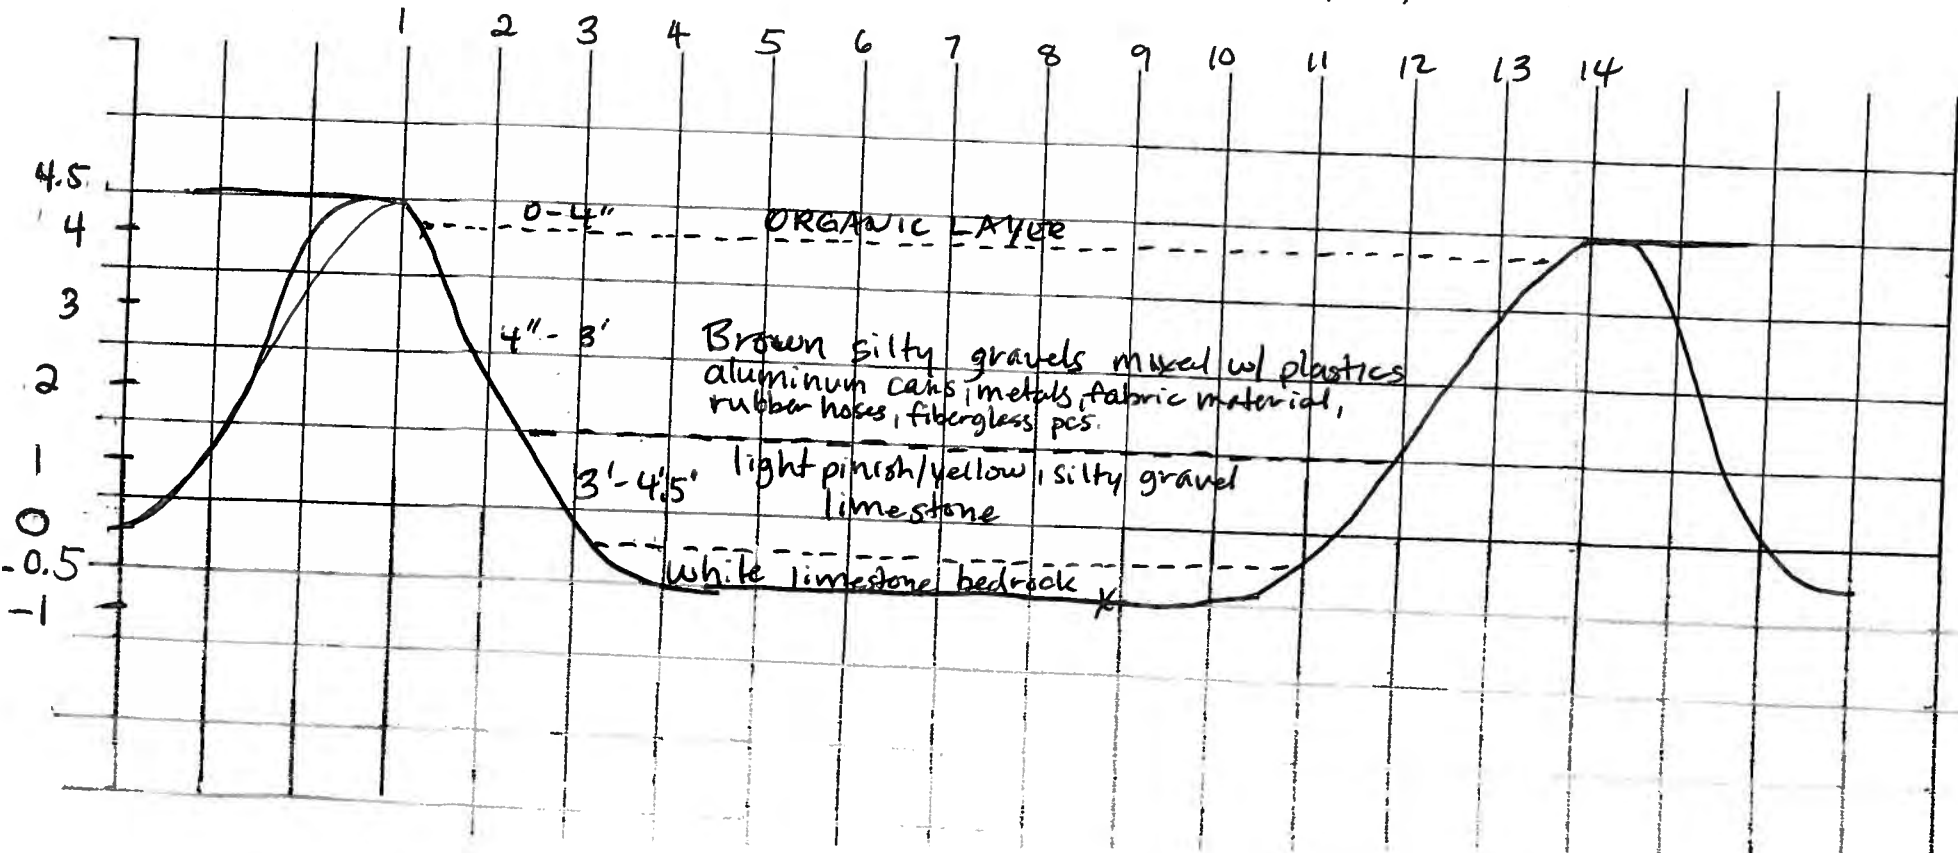 1 2 3 4 5 6 7 8 9 10 11 12 13 14
4.5
4
3
2
1
0
-0.5
-1
0-4" ORGANIC LAYER
4"-3' Brown silty gravels mixed w/ plastics
aluminum cans, metals, fabric material,
rubber hoses, fiberglass pcs.
3'-4.5' light pinish/yellow, silty gravel
limestone
white limestone bedrock
x